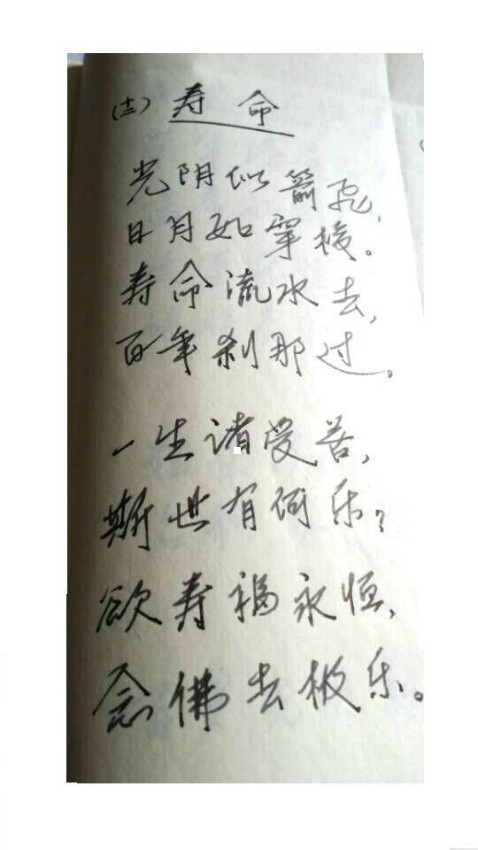 (十二) 寿命
光阴似箭飞,
日月如穿梭。
寿命流水去,
百年刹那过。
一生诸受苦,
斯世有何乐?
欲寿福永恒,
念佛去极乐。